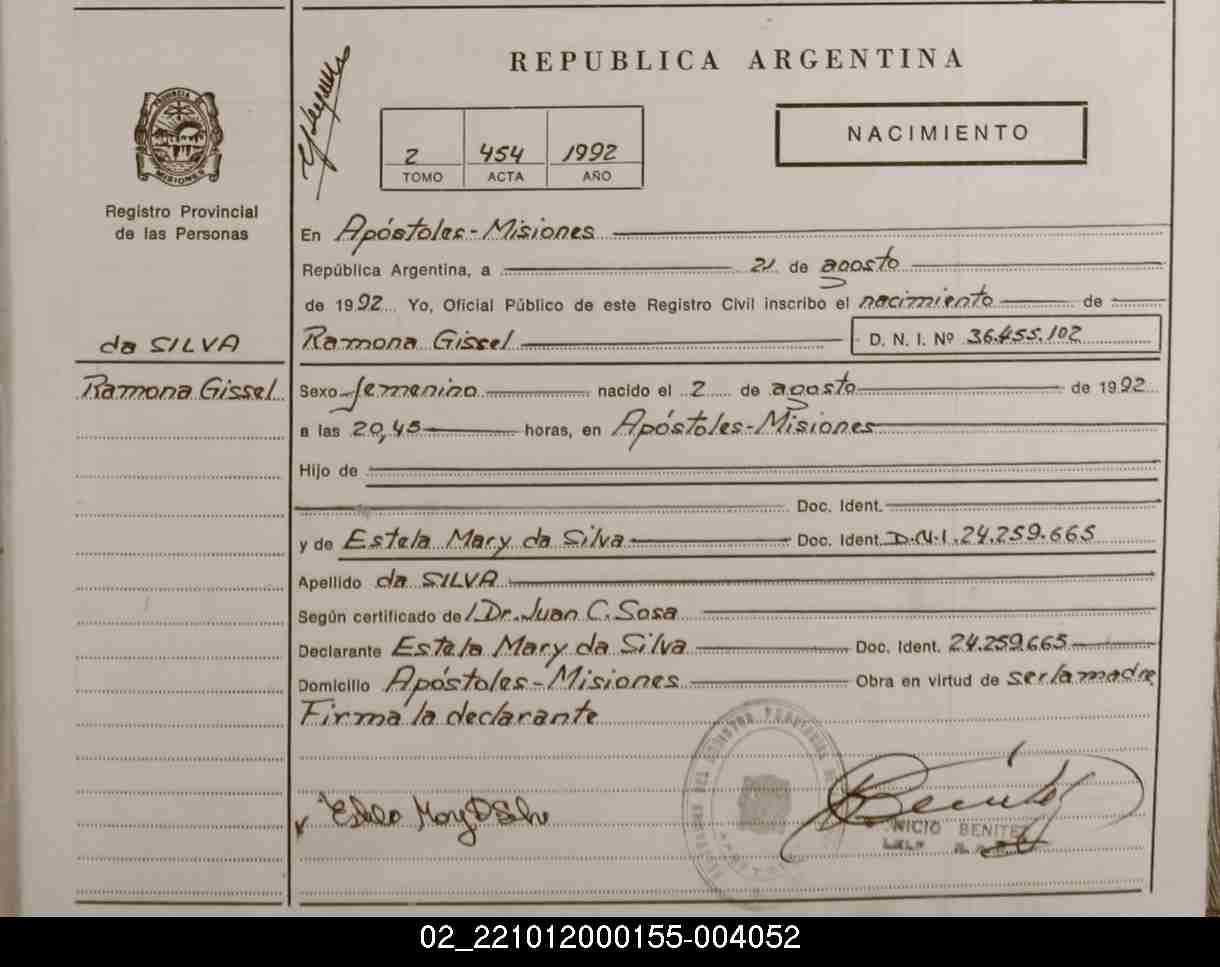 REPUBLICA ARGENTINA
PROVINCIA DE
MISIONES
NACIMIENTO
2 454 1992
TOMO ACTA AÑO
Registro Provincial
de las Personas
En Apóstoles-Misiones
República Argentina, a 21 de agosto
de 1992 Yo, Oficial Público de este Registro Civil inscribo el nacimiento de
da SILVA
Ramona Gissel D. N. I. Nº 36.455.102
Ramona Gissel
Sexo femenino nacido el 2 de agosto de 1992
a las 20,45 horas, en Apóstoles-Misiones
Hijo de
Doc. Ident.
y de Estela Mary da Silva Doc. Ident. D.N.I. 24.259.665
Apellido da SILVA
Según certificado de Dr. Juan C. Sosa
Declarante Estela Mary da Silva Doc. Ident. 24.259.665
Domicilio Apóstoles-Misiones Obra en virtud de ser la madre
Firma la declarante
BENITEZ
02_221012000155-004052